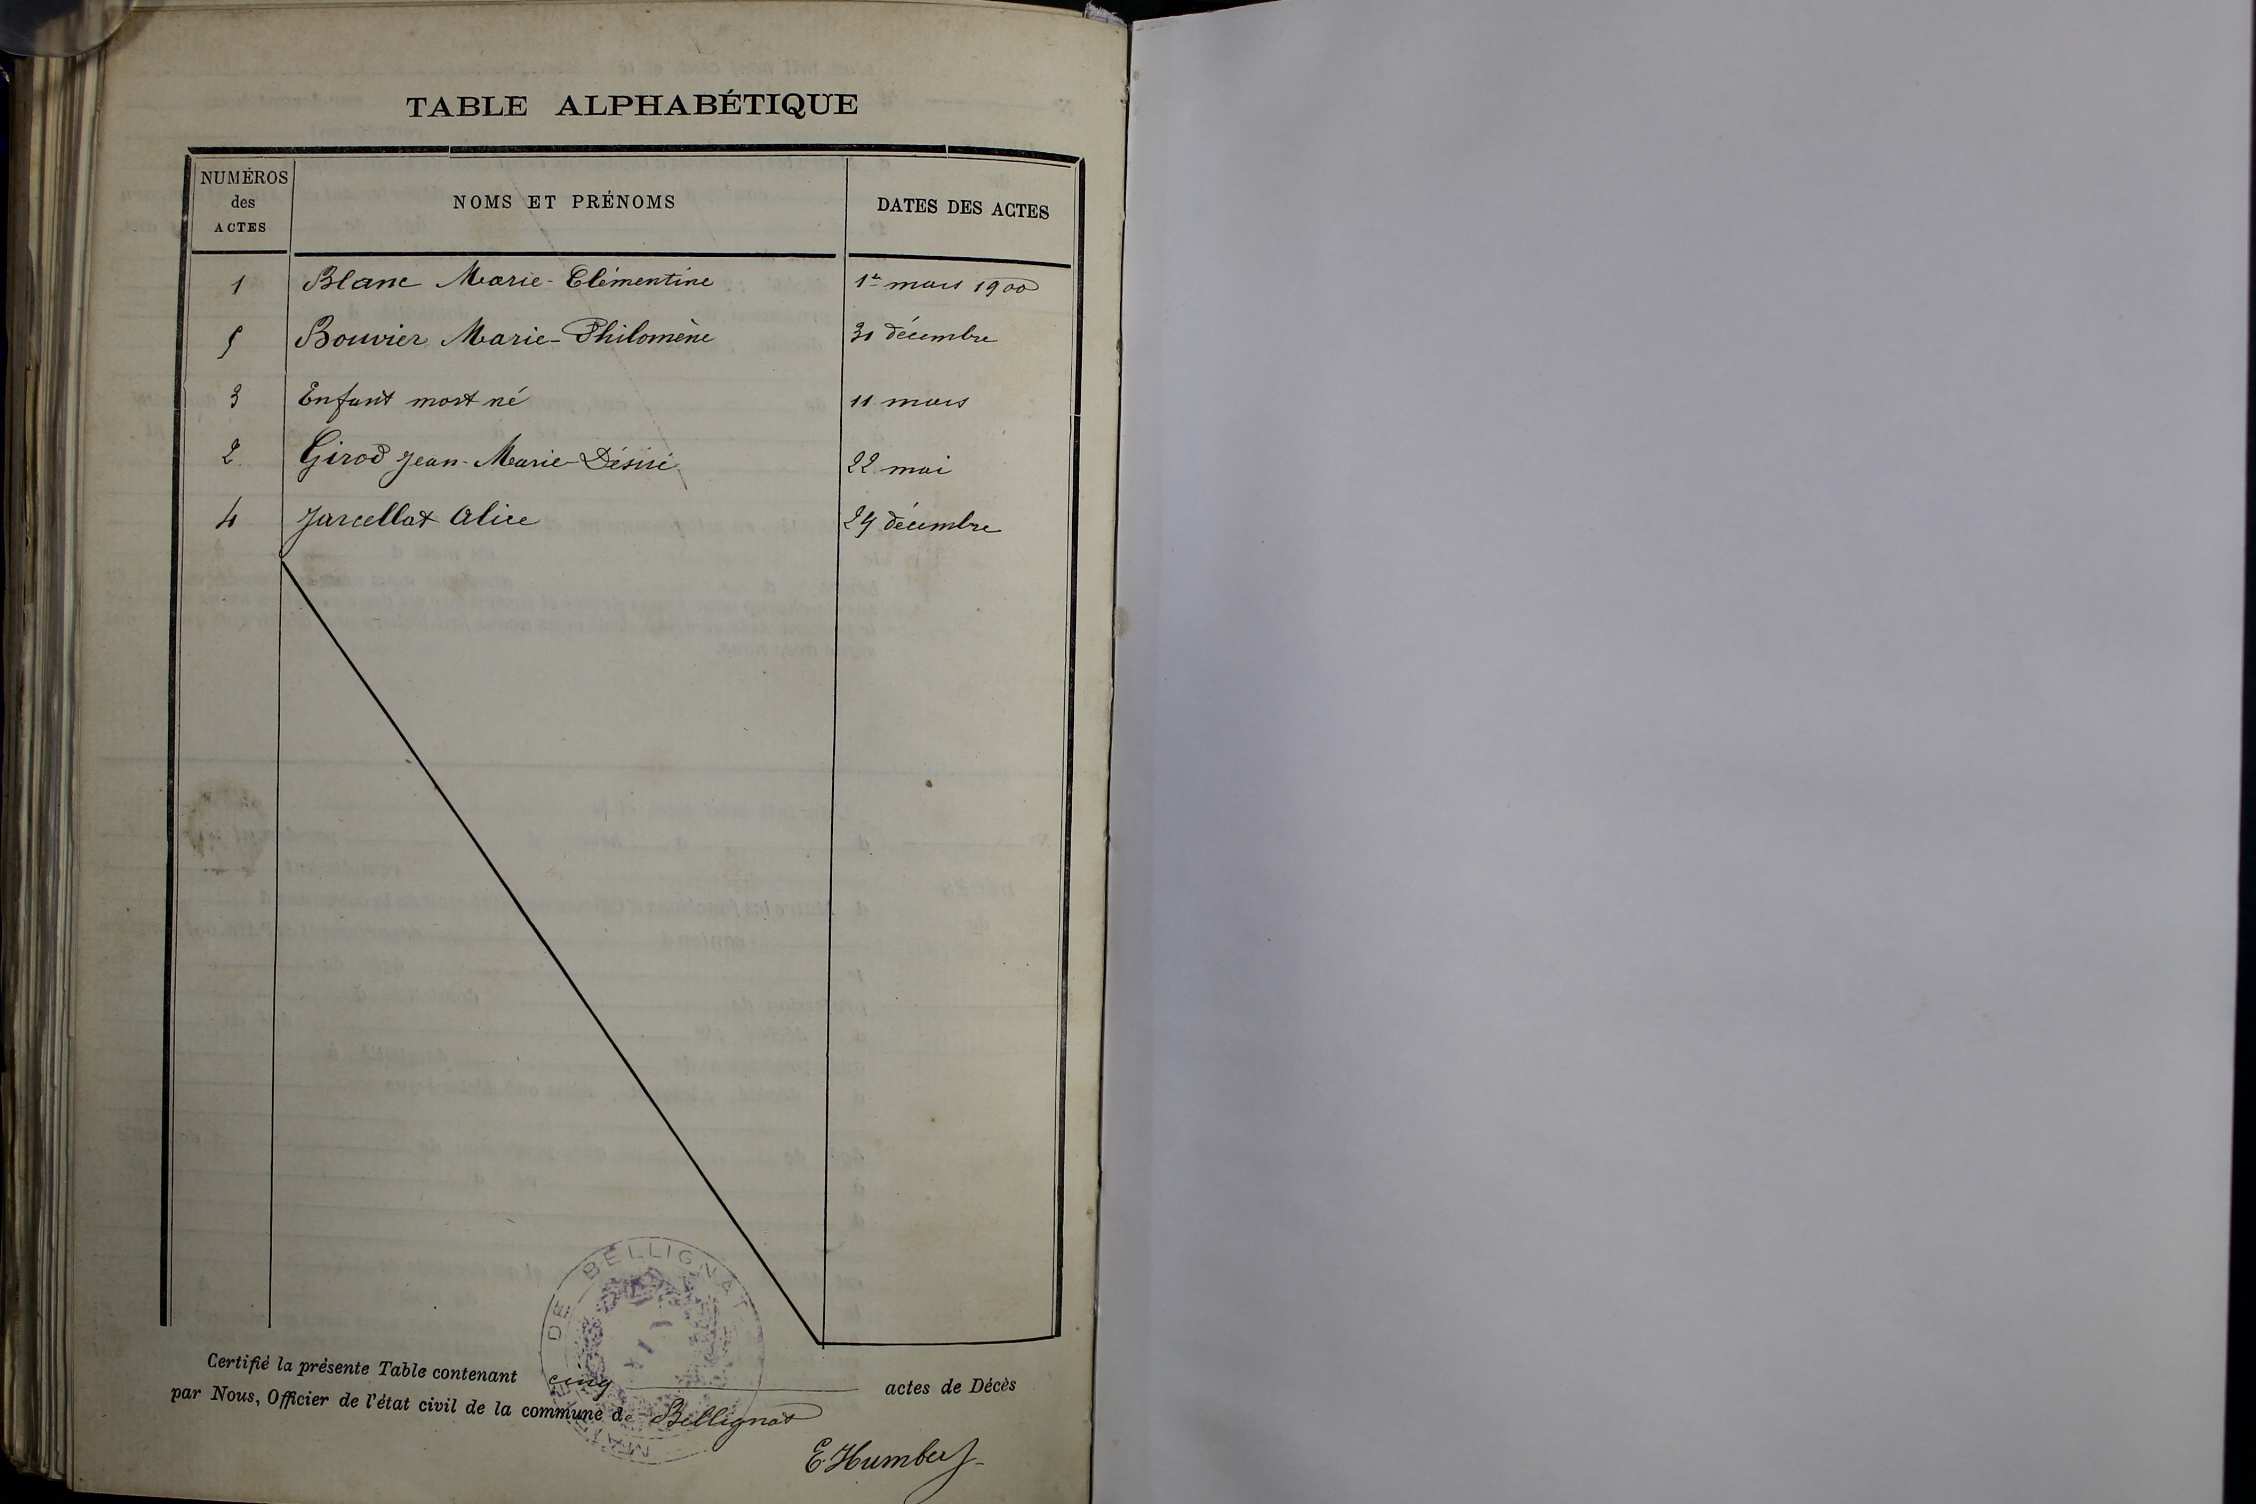 TABLE ALPHABÉTIQUE
NUMÉROS des ACTES
NOMS ET PRÉNOMS
DATES DES ACTES
1 Blanc Marie-Clémentine 1er mars 1900
5 Bouvier Marie-Philomène 30 décembre
3 Enfant mort né 11 mars
2 Girod Jean-Marie-Désiré 22 mai
4 Jarcellat Alice 29 décembre
DE BELLIGNAT
Certifié la présente Table contenant cinq actes de Décès
par Nous, Officier de l'état civil de la commune de Bellignat
E. Humbert